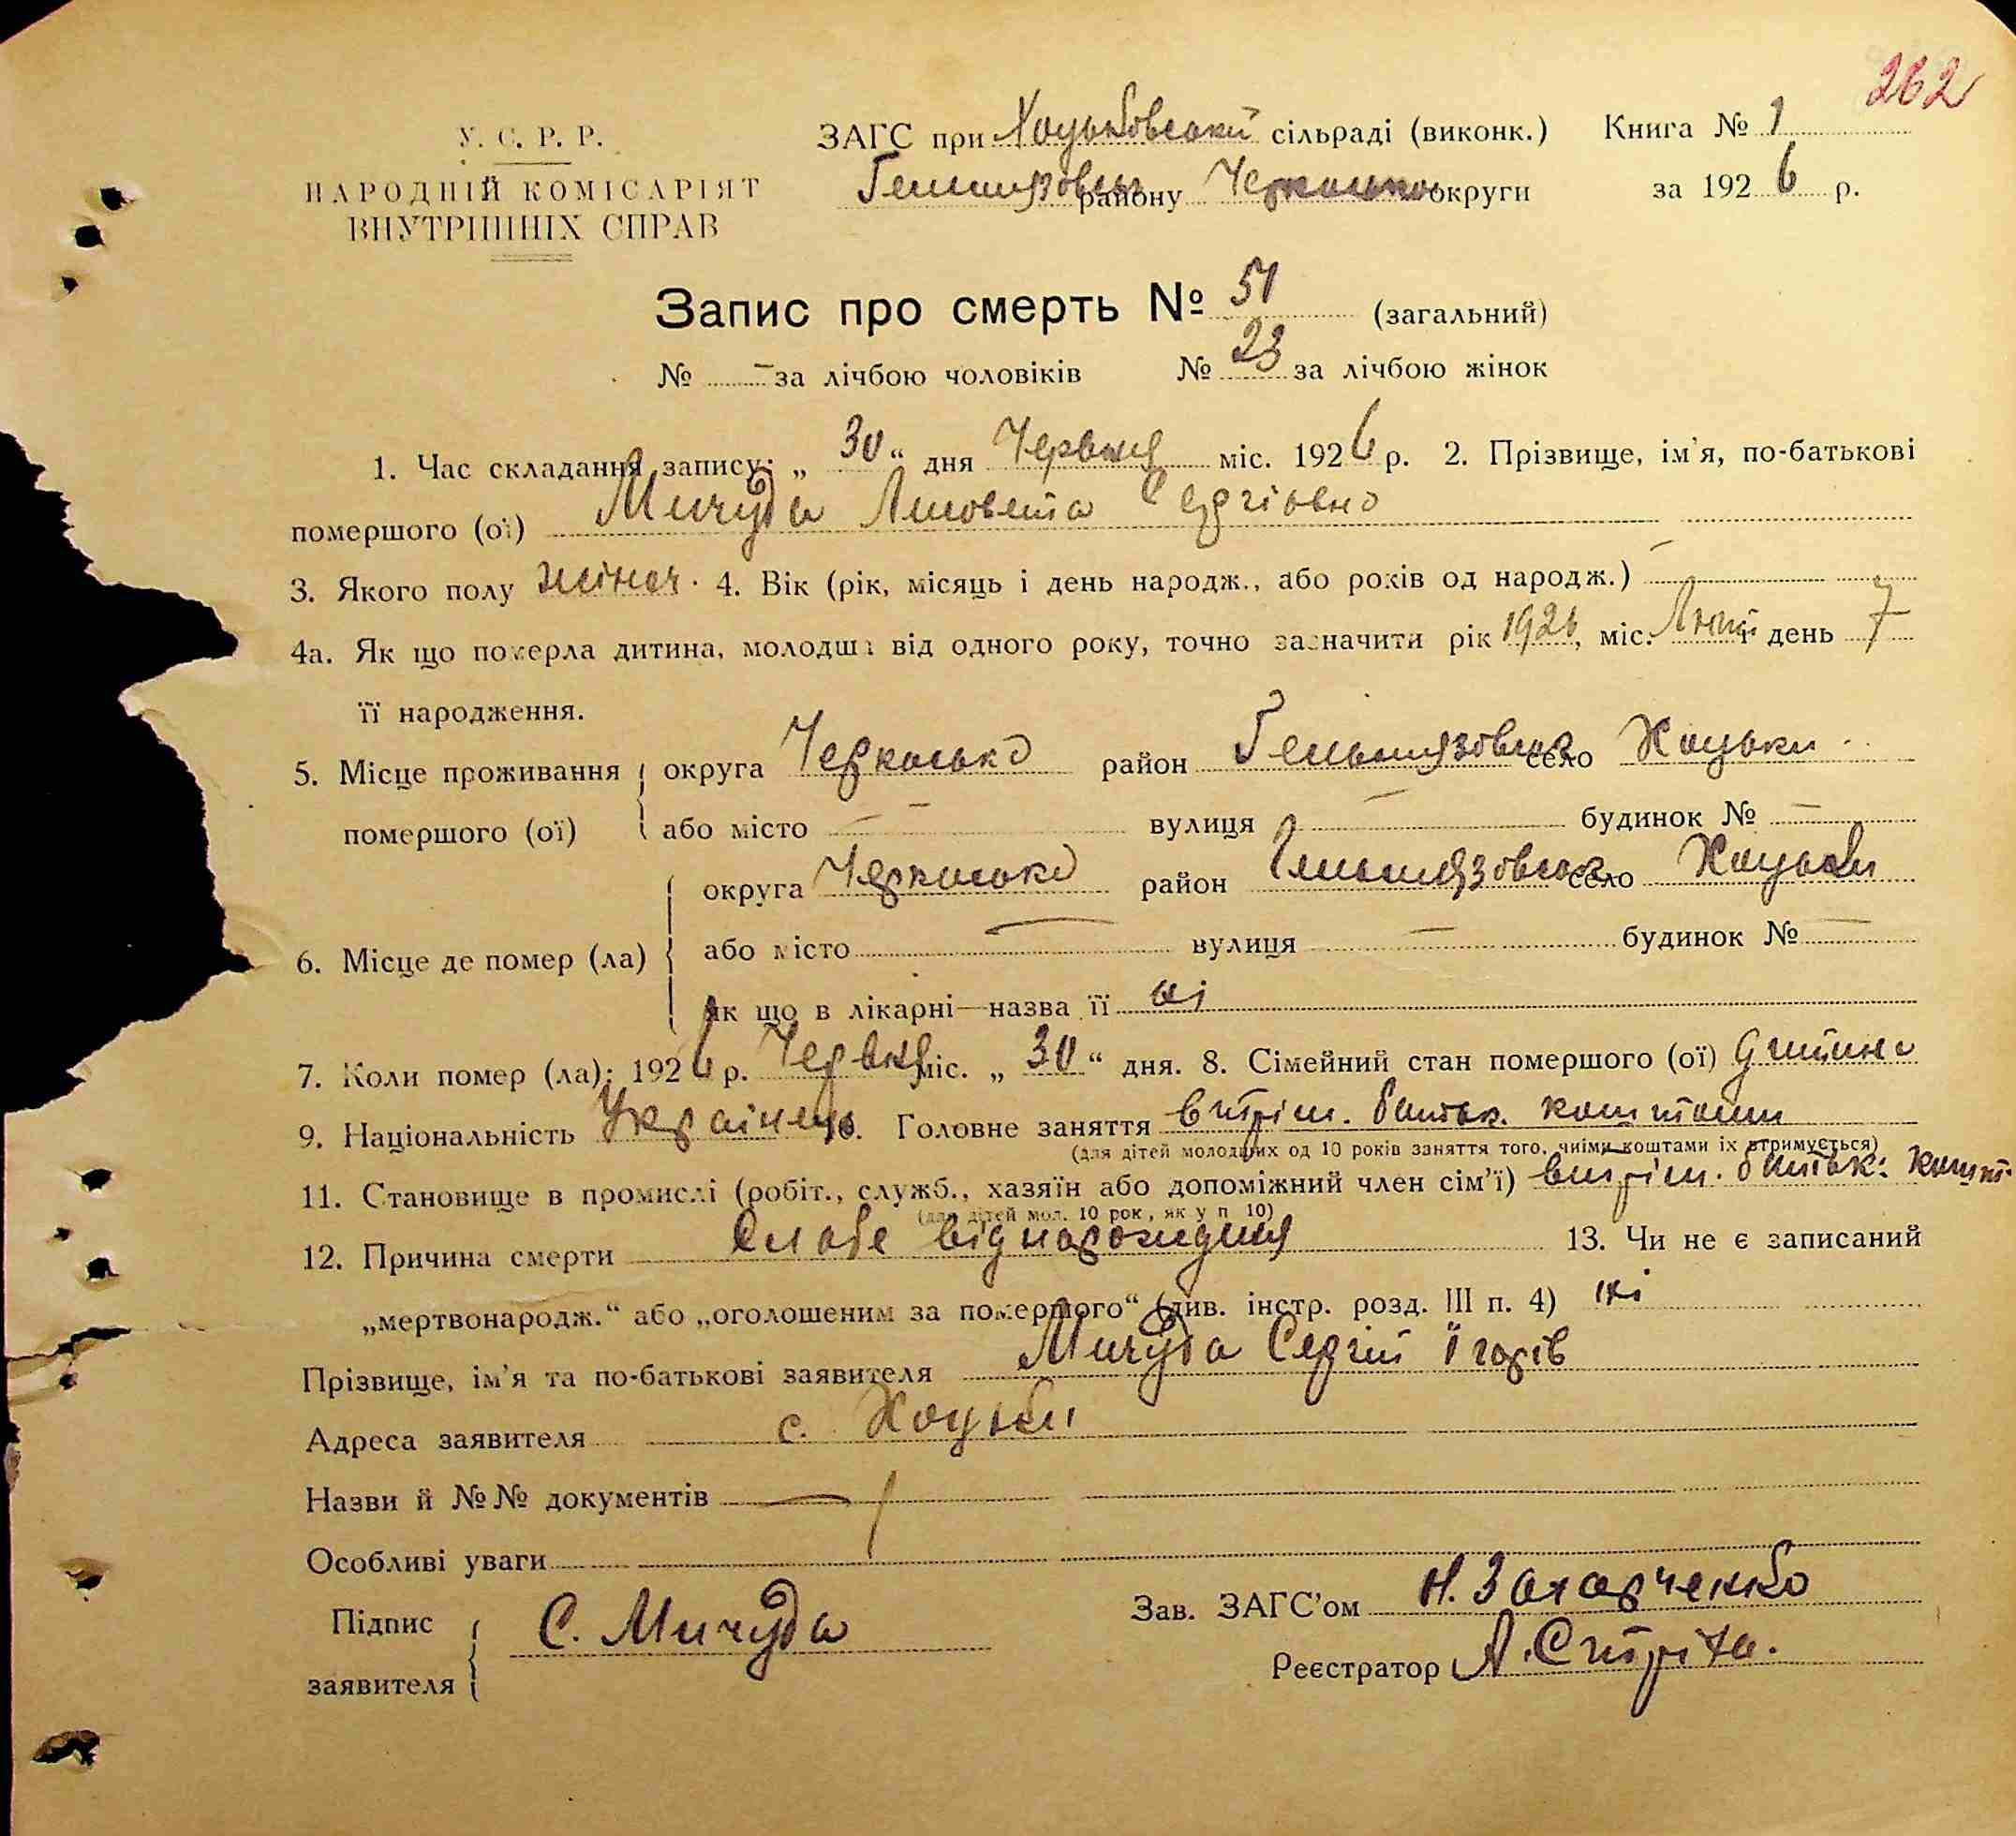 262
У. С. Р. Р.
НАРОДНІЙ КОМІСАРІЯТ
ВНУТРІШНІХ СПРАВ
ЗАГС при Хоцьковській сільраді (виконк.) Книга № 1
Гельмязовськ району Черкаської округи за 1926 р.
Запис про смерть № 51 (загальний)
№ — за лічбою чоловіків № 23 за лічбою жінок
1. Час складання запису: „ 30 “ дня Червня міс. 1926 р. 2. Прізвище, ім'я, по-батькові
помершого (ої) Мичуда Лисовета Сергіовна
3. Якого полу жіноч. 4. Вік (рік, місяць і день народж., або років од народж.) —
4а. Як що померла дитина, молодша від одного року, точно зазначити рік 1926, міс. Лютий і день 7
її народження.
5. Місце проживання помершого (ої) округа Черкасько район Гельмязовськ село Хоцьки
або місто — вулиця — будинок № —
6. Місце де помер (ла) округа Черкасько район Гельмязовськ село Хоцьки
або місто — вулиця — будинок № —
як що в лікарні—назва її ні
7. Коли помер (ла): 1926 р. Червня міс. „ 30 “ дня. 8. Сімейний стан помершого (ої) дитина
9. Національність Українець 10. Головне заняття втрім. батьк. коштами
(для дітей молодших од 10 років заняття того, чиїми коштами їх втримується)
11. Становище в промислі (робіт., служб., хазяїн або допоміжний член сім'ї) втрім. батьк. кошт.
(для дітей мол. 10 рок, як у п 10)
12. Причина смерти Слабе від народження 13. Чи не є записаний
„мертвонародж.“ або „оголошеним за помершого“ (див. інстр. розд. III п. 4) ні
Прізвище, ім'я та по-батькові заявителя Мичуда Сергій Ігорів
Адреса заявителя с. Хоцьки
Назви й №№ документів —
Особливі уваги
Підпис заявителя С. Мичуда
Зав. ЗАГС'ом Н. Захарченко
Реєстратор А. Стріха.